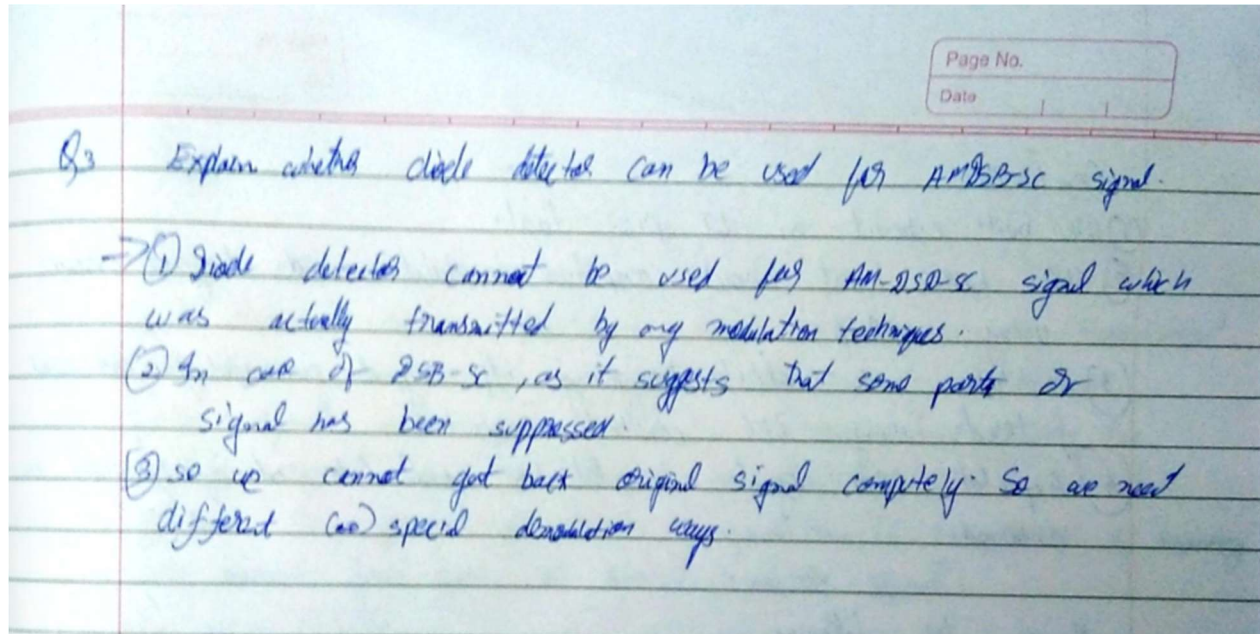 Page No.
Date
Q3 Explain whether diode detector can be used for AMDSB-SC signal.
→ ① Diode detector cannot be used for AM-DSB-SC signal which
was actually transmitted by any modulation techniques.
② In case of DSB-SC, as it suggests that some part or
signal has been suppressed.
③ so we cannot get back original signal completely. So we need
different (or) special demodulation ways.